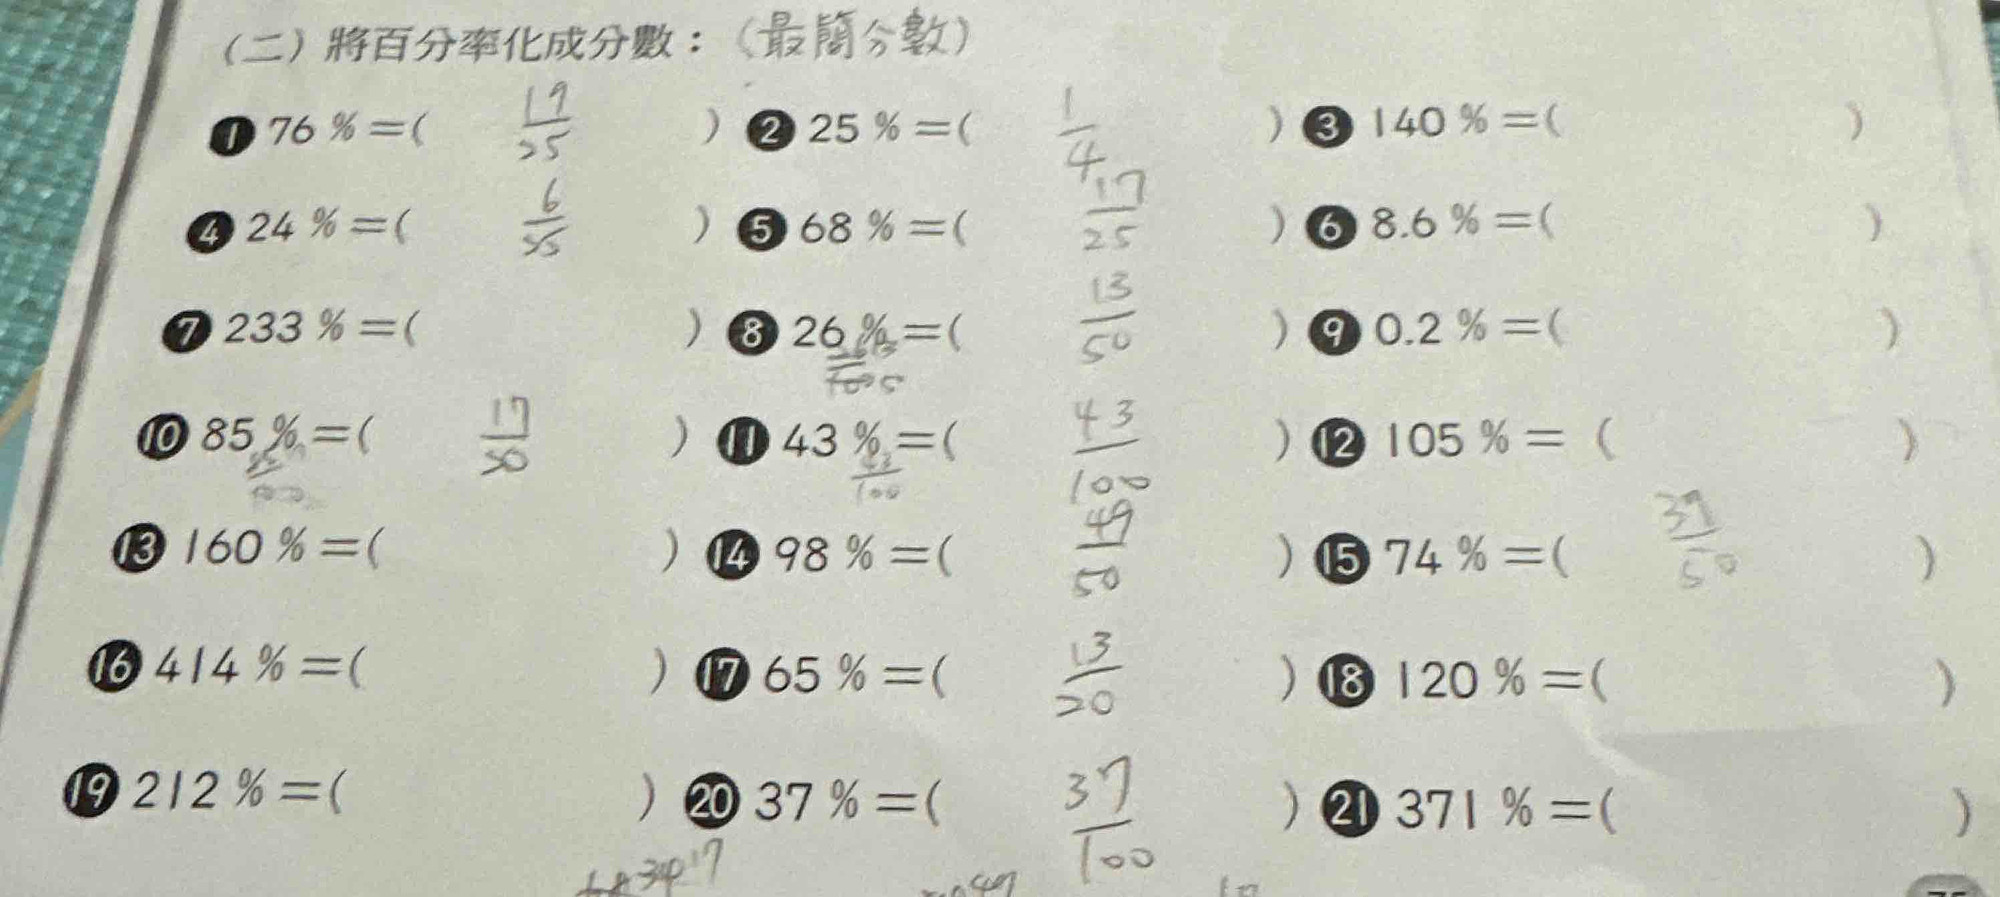 (二) 將百分率化成分數：(最簡分數)
❶ 76％＝( 19/25 ) ❷ 25％＝( 1/4 ) ❸ 140％＝( )
❹ 24％＝( 6/25 ) ❺ 68％＝( 17/25 ) ❻ 8.6％＝( )
❼ 233％＝( ) ❽ 26％＝( 13/50 ) ❾ 0.2％＝( )
❿ 85％＝( 17/20 ) ⓫ 43％＝( 43/100 ) ⓬ 105％＝( )
43/100
⓭ 160％＝( ) ⓮ 98％＝( 49/50 ) ⓯ 74％＝( 37/50 )
⓰ 414％＝( ) ⓱ 65％＝( 13/20 ) ⓲ 120％＝( )
⓳ 212％＝( ) ⓴ 37％＝( 37/100 ) ㉑ 371％＝( )
34 17